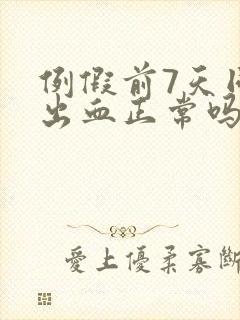 例假前7天
出血正常吗
愛上優柔寡斷